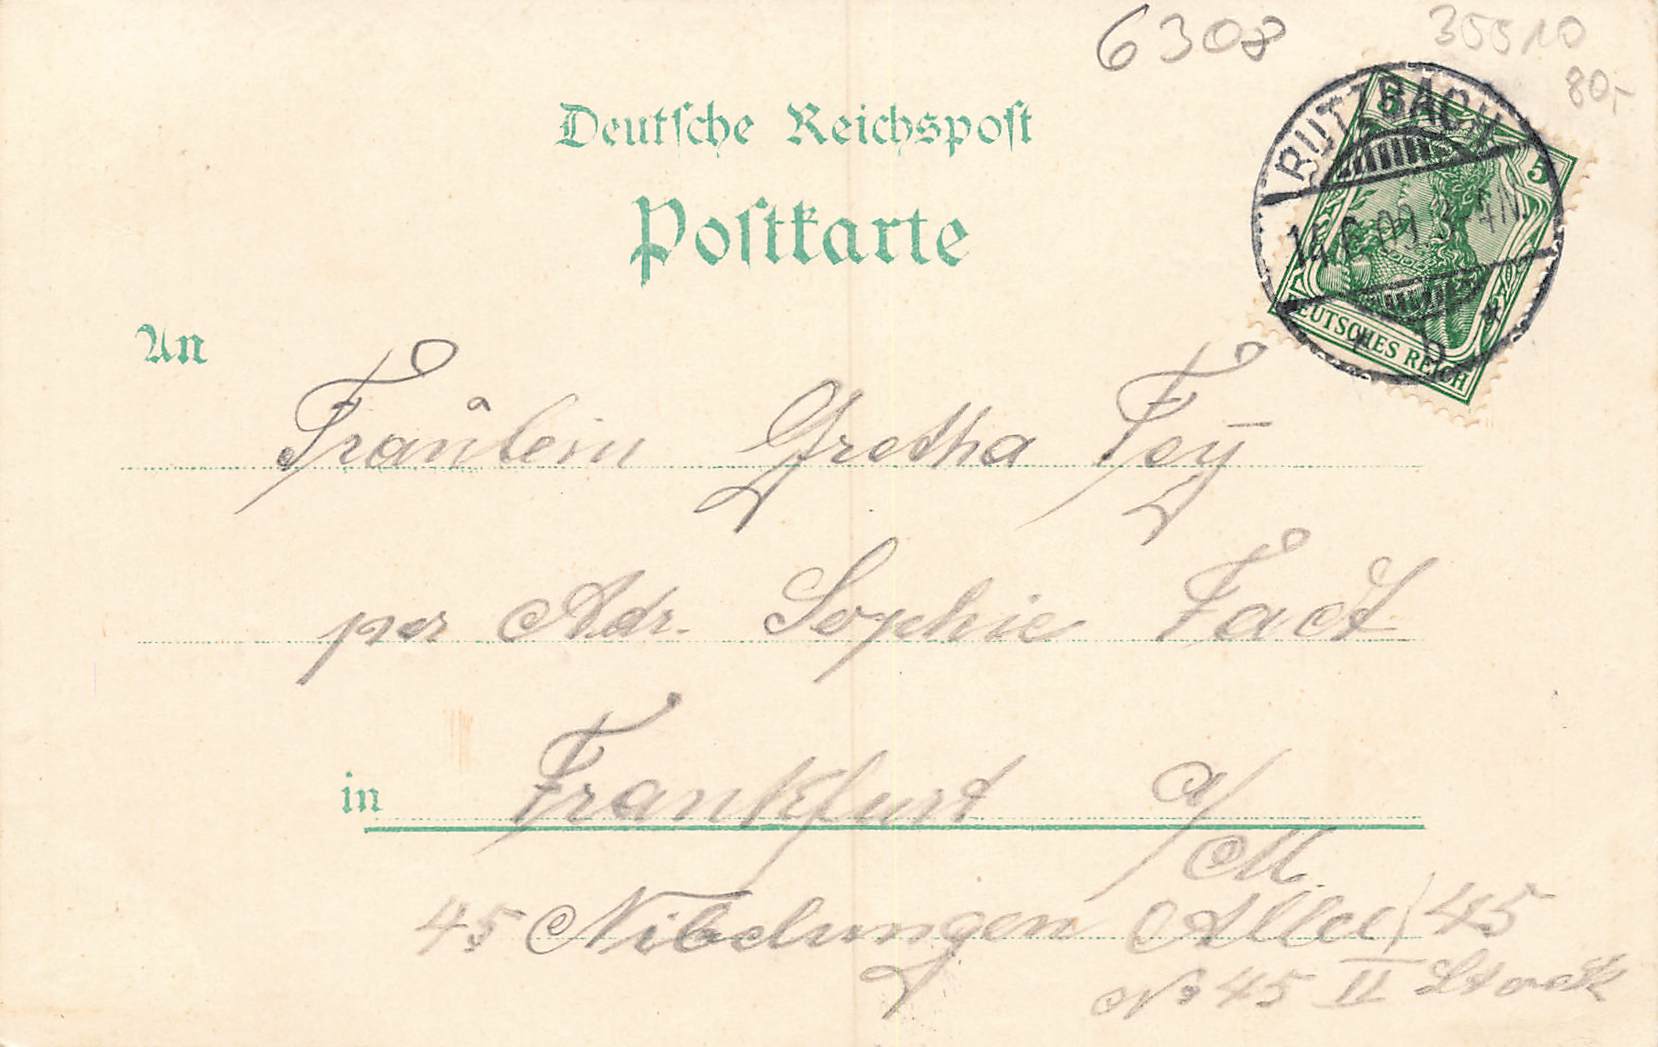 6308
35510
80,-
Deutsche Reichspost
Postkarte
BUTZBACH
5 5
14.6.09.3-4N.
* b *
DEUTSCHES REICH
An
Fräulein Gretha Fey
per Adr. Sophie
in Frankfurt a/
M.
45 Nibelungen Allee 45
No 45 II Stock